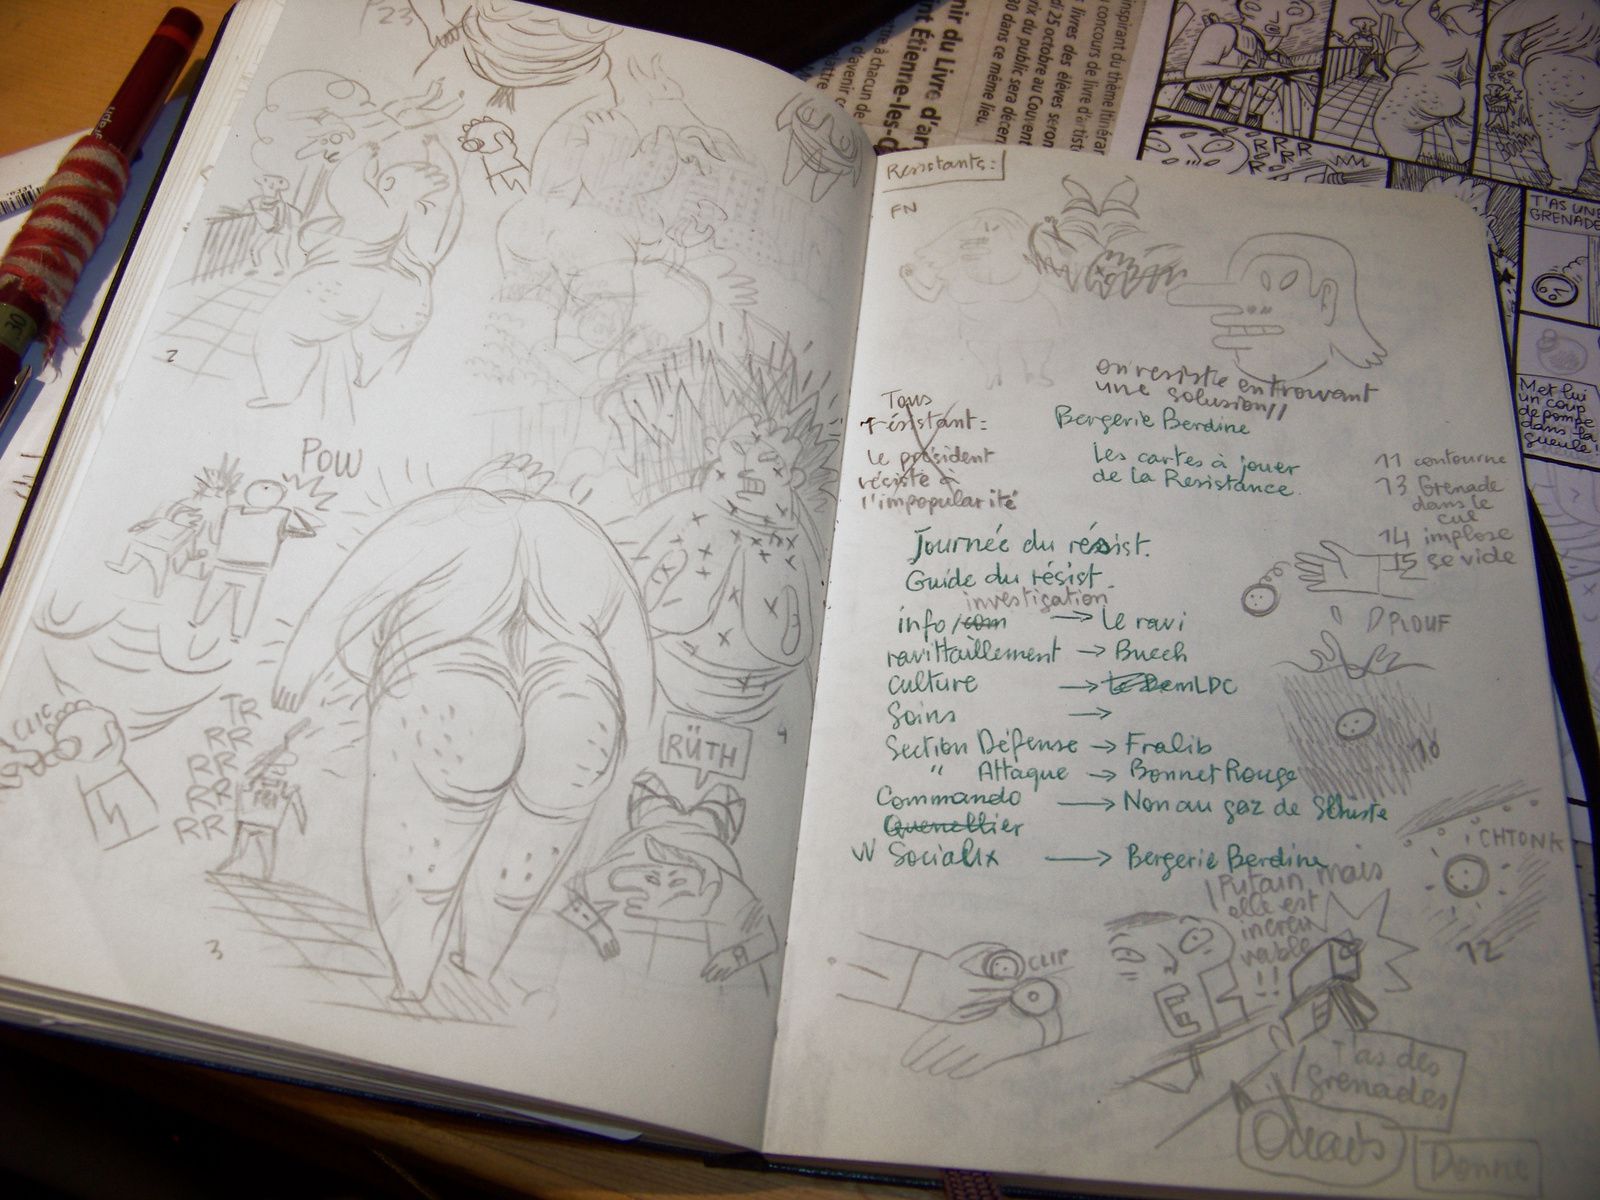 P23
2
POW
CLIC
TR
RR
RR
RR
RR
RÜTH
3
4
Resistants:
FN
on resiste en trouvant
une solusion//
Tous
résistant:
le président
résiste à
l'impopularité
Bergerie Berdine
Les cartes à jouer
de la Resistance.
11 contourne
13 Grenade
dans le
cul
14 implose
15 se vide
Journée du résist.
Guide du résist.
investigation
info/com → Le ravi
ravittaillement → Buech
Culture → LDC
Soins →
Section Défense → Fralib
" Attaque → Bonnet Rouge
Commando → Non au gaz de Schiste
Quenellier
W Sociaux → Bergerie Berdine
PLOUF
10
CHTONK
12
CLIP
Putain mais
elle est
increu
vable
!!
T'as des
grenades
Ouais
Donne
inspirant du thème Itinéran
u concours de livre d'artiste
s livres des élèves seront
di 25 octobre au Couvent
rix du public sera décern
30 dans ce même lieu.
nir du Livre d'ar
nt Étienne-les-O
à chacun de
d'avenir
RR
RR
T'AS UNE
GRENADE
Met lui
un coup
de pompe
dans la
gueule!